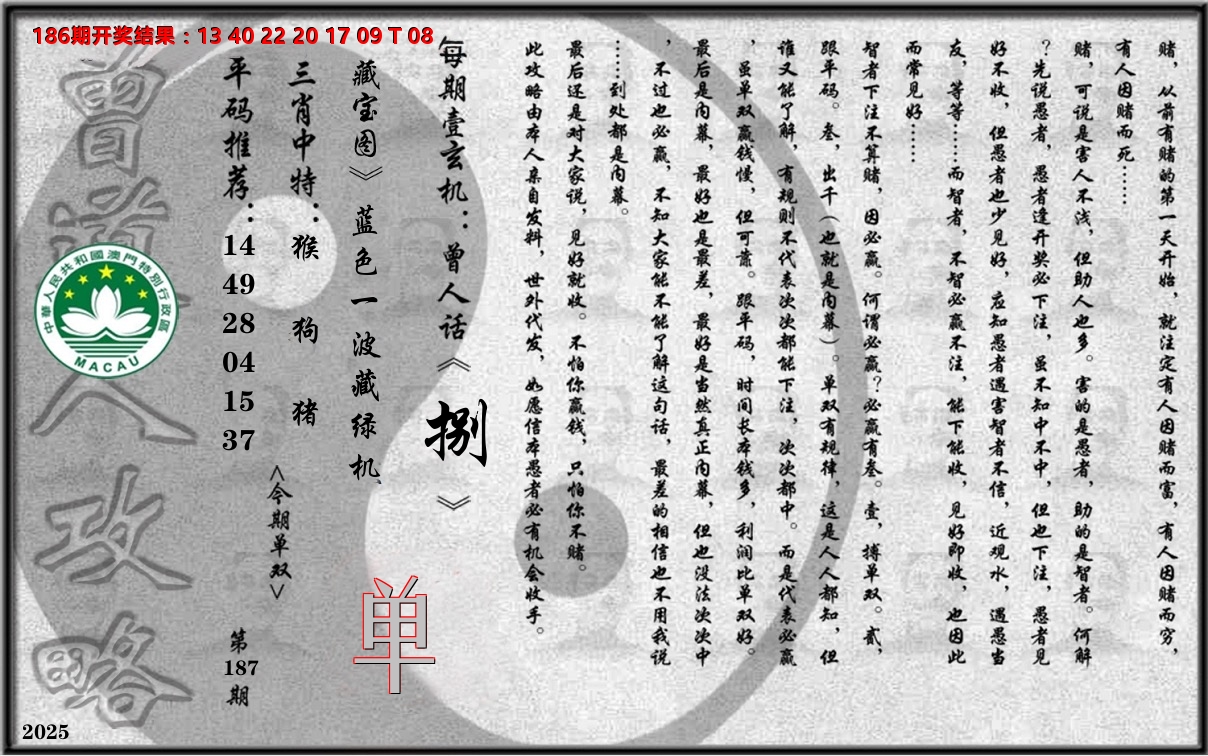 186期开奖结果：13 40 22 20 17 09 T 08
赌，从前有赌的第一天开始，就注定有人因赌而富，有人因赌而穷，
有人因赌而死……
赌，可说是害人不浅，但助人也多。害的是愚者，助的是智者。何解
？先说愚者，愚者逢开奖必下注，虽不知中不中，但也下注，愚者见
好不收，但愚者也少见好，应知愚者遇害智者不信，近观水，遇愚当
友，等等……而智者，不智必赢不注，能下能收，见好即收，也因此
而常见好……
智者下注不算赌，因必赢。何谓必赢？必赢有叁。壹，搏单双。贰，
跟平码。叁，出千（也就是内幕）。单双有规律，这是人人都知，但
谁又能了解，有规则不代表次次都能下注，次次都中。而是代表必赢
，虽单双赢钱慢，但可靠。跟平码，时间长本钱多，利润比单双好。
最后是内幕，最好也是最差，最好是当然真正内幕，但也没法次次中
，不过也必赢，不知大家能不能了解这句话，最差的相信也不用我说
……到处都是内幕。
最后还是对大家说，见好就收。不怕你赢钱，只怕你不赌。
此攻略由本人亲自发料，世外代发，如愿信本愚者必有机会收手。
每期壹玄机：曾人话《捌》
藏宝图》蓝色一波藏绿机
三肖中特：猴 狗 猪
<今期单双>
单
平码推荐：14 49 28 04 15 37
第187期
曾道人攻略
中華人民共和國澳門特別行政區
MACAU
2025